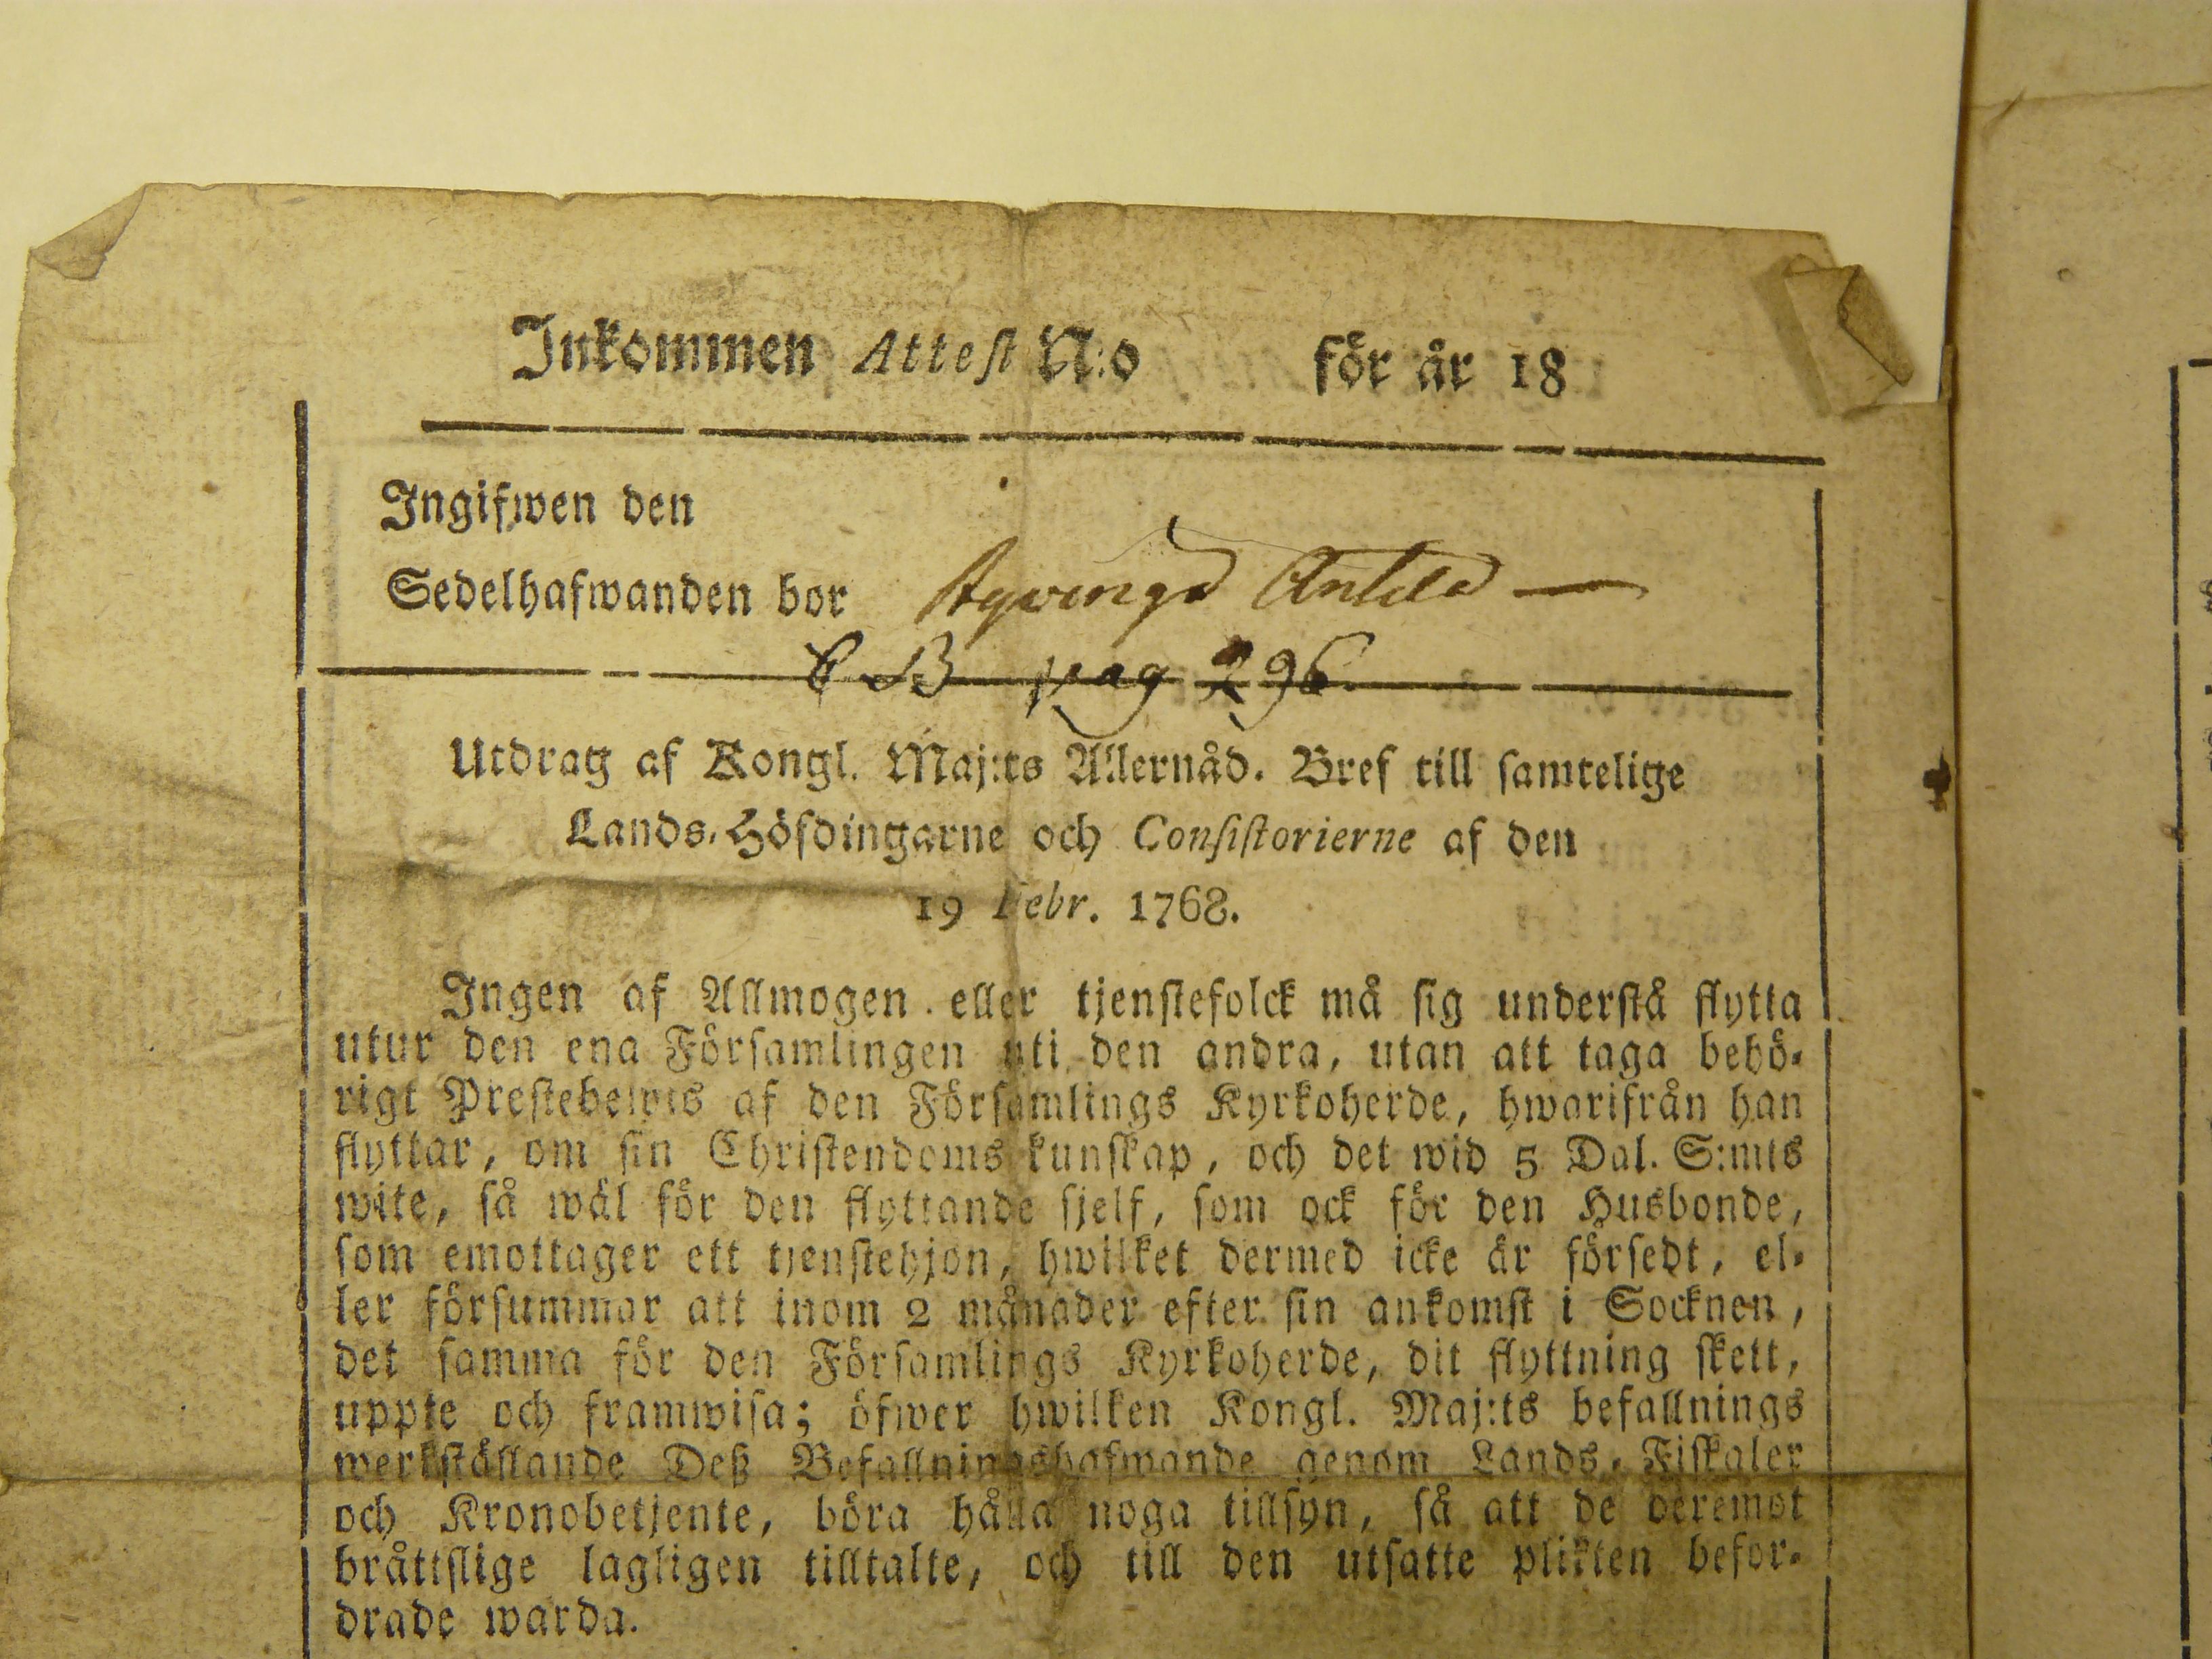 Inkommen Attest N:o för år 18
Ingifwen den
Sedelhafwanden bor
C B pag 296.
Utdrag af Kongl. Maj:ts Allernåd. Bref till samtelige
Lands-Höfdingarne och Consistorierne af den
19 Febr. 1768.
Ingen af Allmogen eller tjenstefolck må sig understå flytta
utur den ena Församlingen uti den andra, utan att taga behö-
rigt Prestebewis af den Församlings Kyrkoherde, hwarifrån han
flyttar, om sin Christendoms kunskap, och det wid 5 Dal. S:mts
wite, så wäl för den flyttande sjelf, som ock för den Husbonde,
som emottager ett tjenstehjon, hwilket dermed icke är försedt, el-
ler försummar att inom 2 månader efter sin ankomst i Socknen,
det samma för den Församlings Kyrkoherde, dit flyttning skett,
uppte och framwisa; öfwer hwilken Kongl. Maj:ts befallnings
werkställande Deß Befallningshafwande genom Lands-Fiskaler
och Kronobetjente, böra hålla noga tillsyn, så att de deremot
bråttslige lagligen tilltalte, och till den utsatte plikten befor-
drade warda.